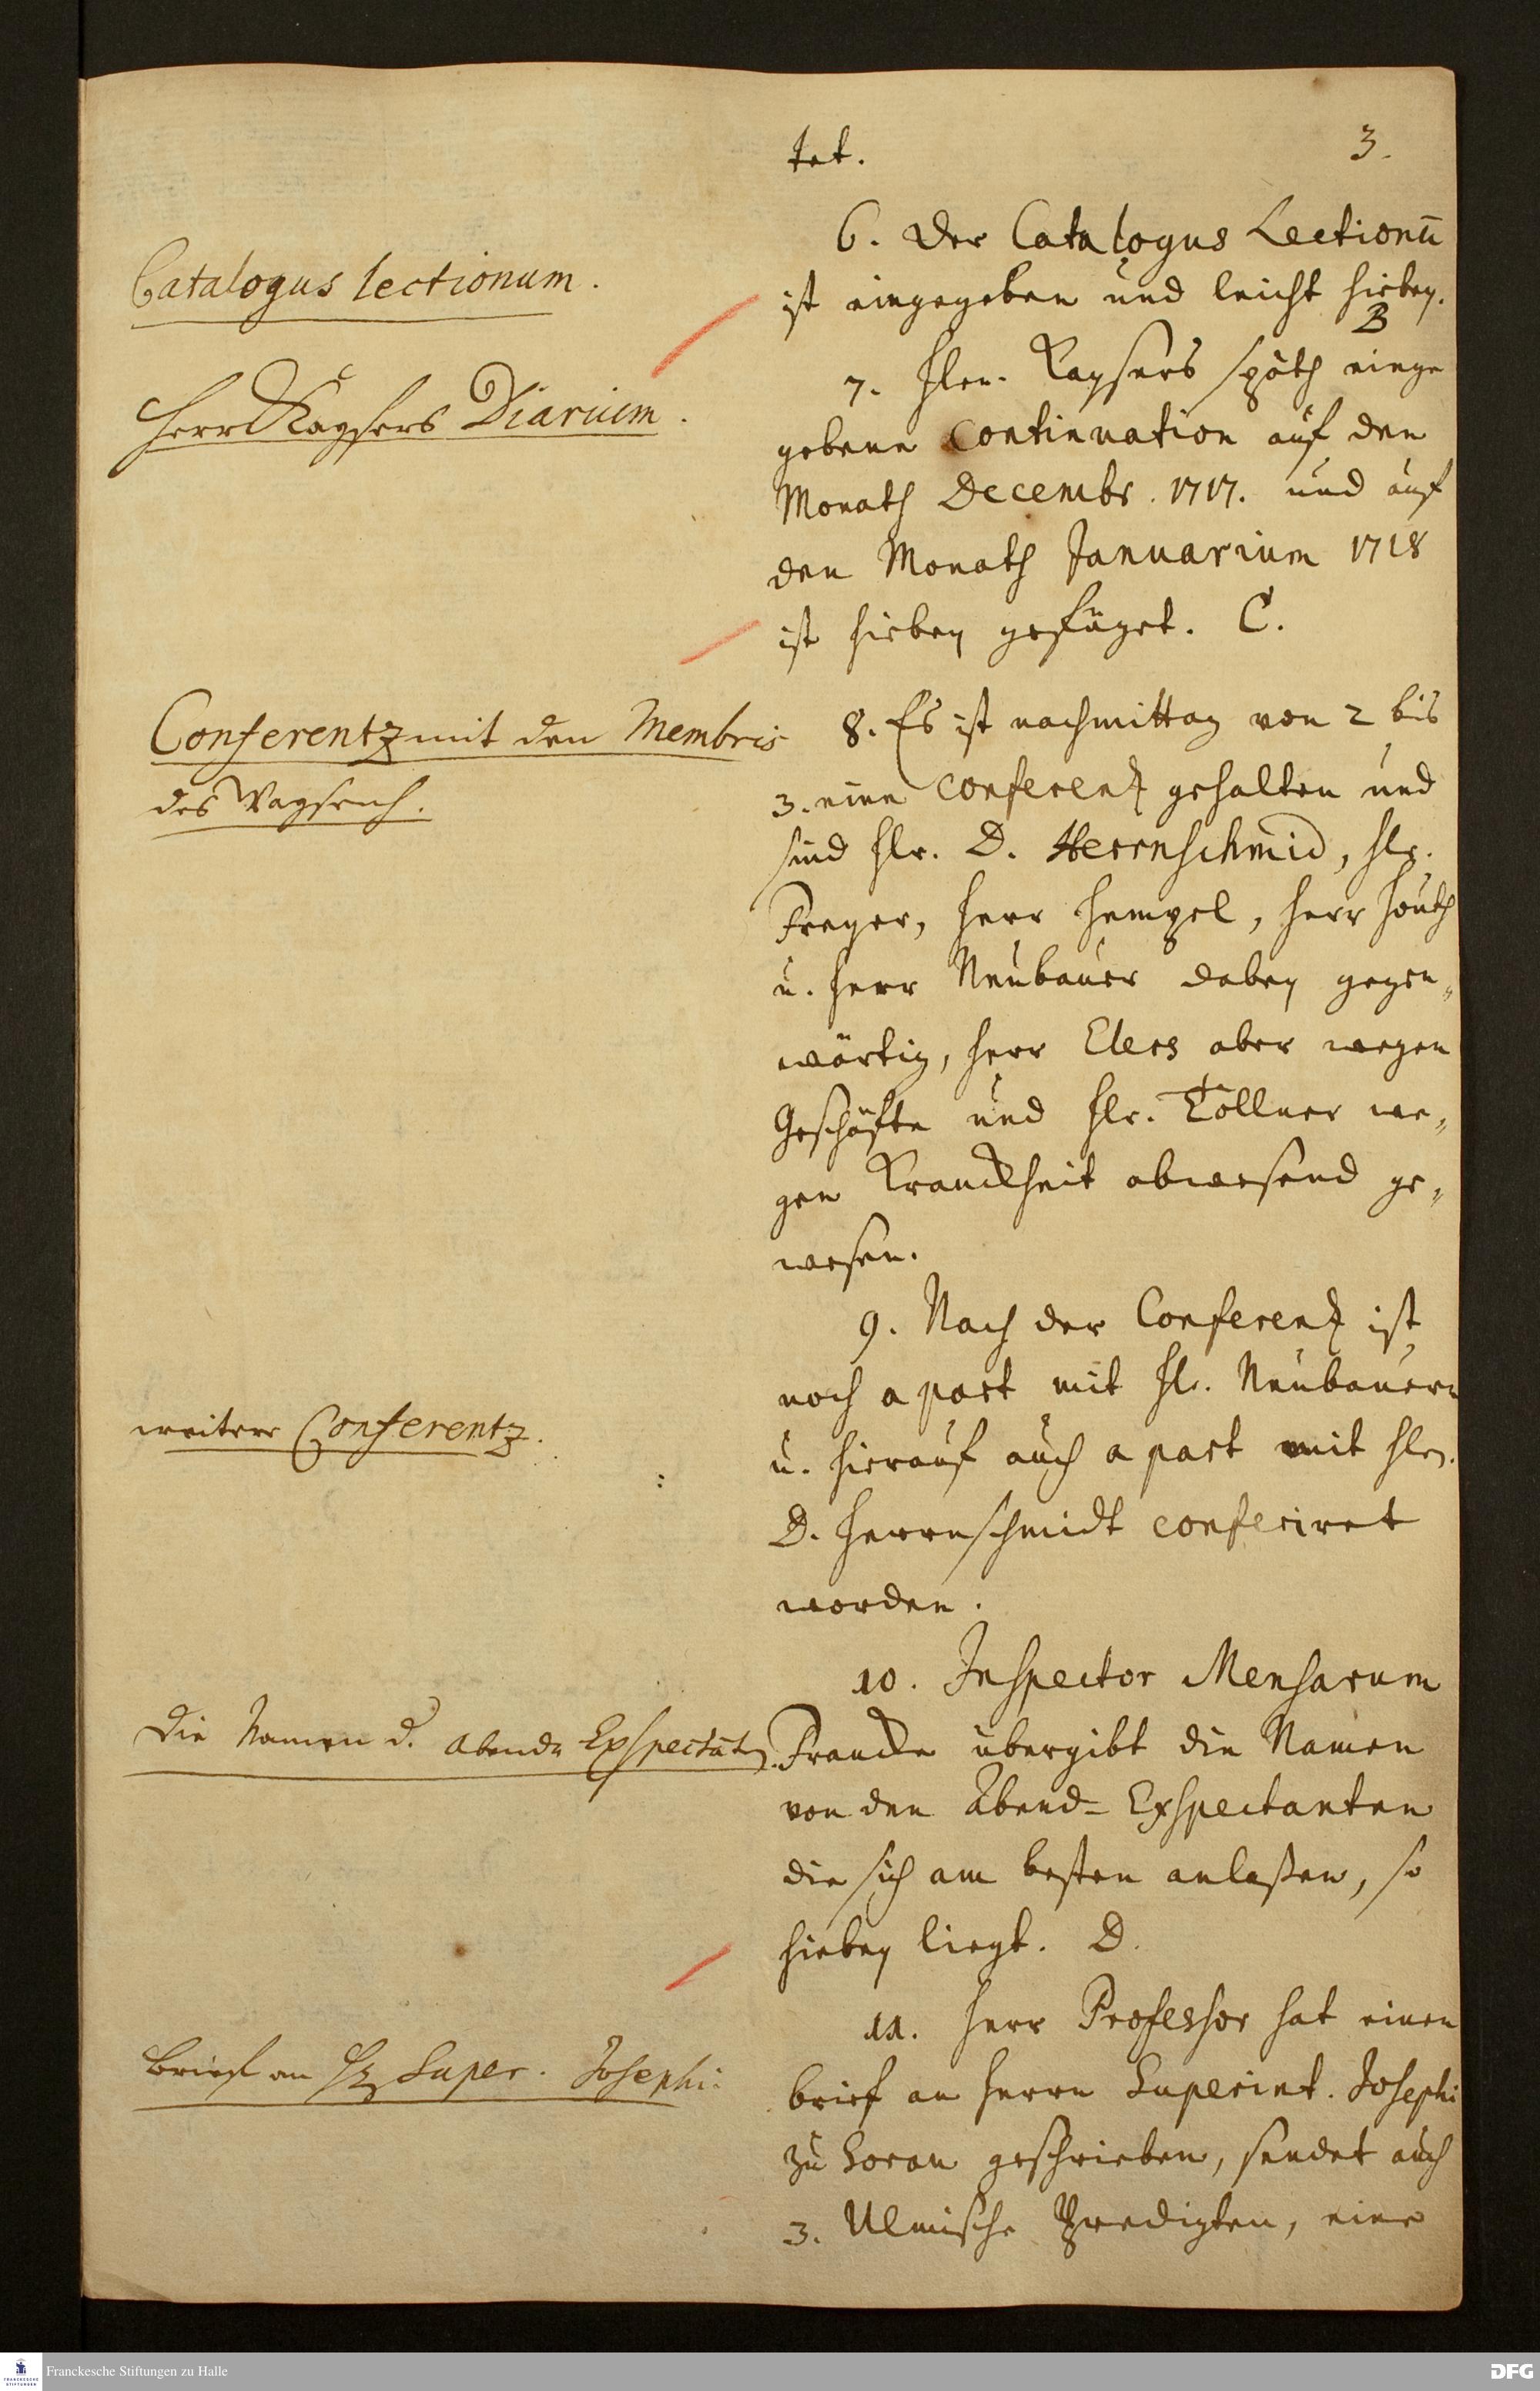 3.
tet.
6. Der Catalogus Lectionū
ist eingegeben und leicht hiebey.
B
7. Hln. Kaysers späth einge
gebene Continuation auf den
Monath Decembr. 1717. und auf
den Monath Januarium 1718
ist hiebey gefüget. C.
8. Es ist nachmittag von 2 bis
3. eine Conferentz gehalten und
sind Hr. D. Herrnschmid, Hr.
Freyer, Herr Hempel, Herr
u. Herr Neubauer dabey gegen„
wärtig, Herr Elers aber wegen
Geschäfte und Hr. Töllner we„
gen Kranckheit abwesend ge„
wesen.
9. Nach der Conferentz ist
noch a part mit H. Neubauern
u. hierauf auch a part mit Hln.
D. Herrnschmidt conferiret
worden.
10. Inspector Mensarum
Francke übergibt die Namen
von den Abend-Exspectanten
die sich am besten anlaßen, so
hiebey liegt. D.
11. Herr Professor hat einen
brief an Herrn Superint. Josephi
zu Sorau geschrieben, sendet auch
3. Ulmische Predigten, eine
Catalogus lectionum.
Herrn Kaysers Diarium.
Conferentz mit den Membris
des Waysenh.
weitere Conferentz.
Die Namen d. Abend-Exspectant.
Brief an H. Super. Josephi.
Franckesche Stiftungen zu Halle
FRANCKESCHE
STIFTUNGEN
DFG